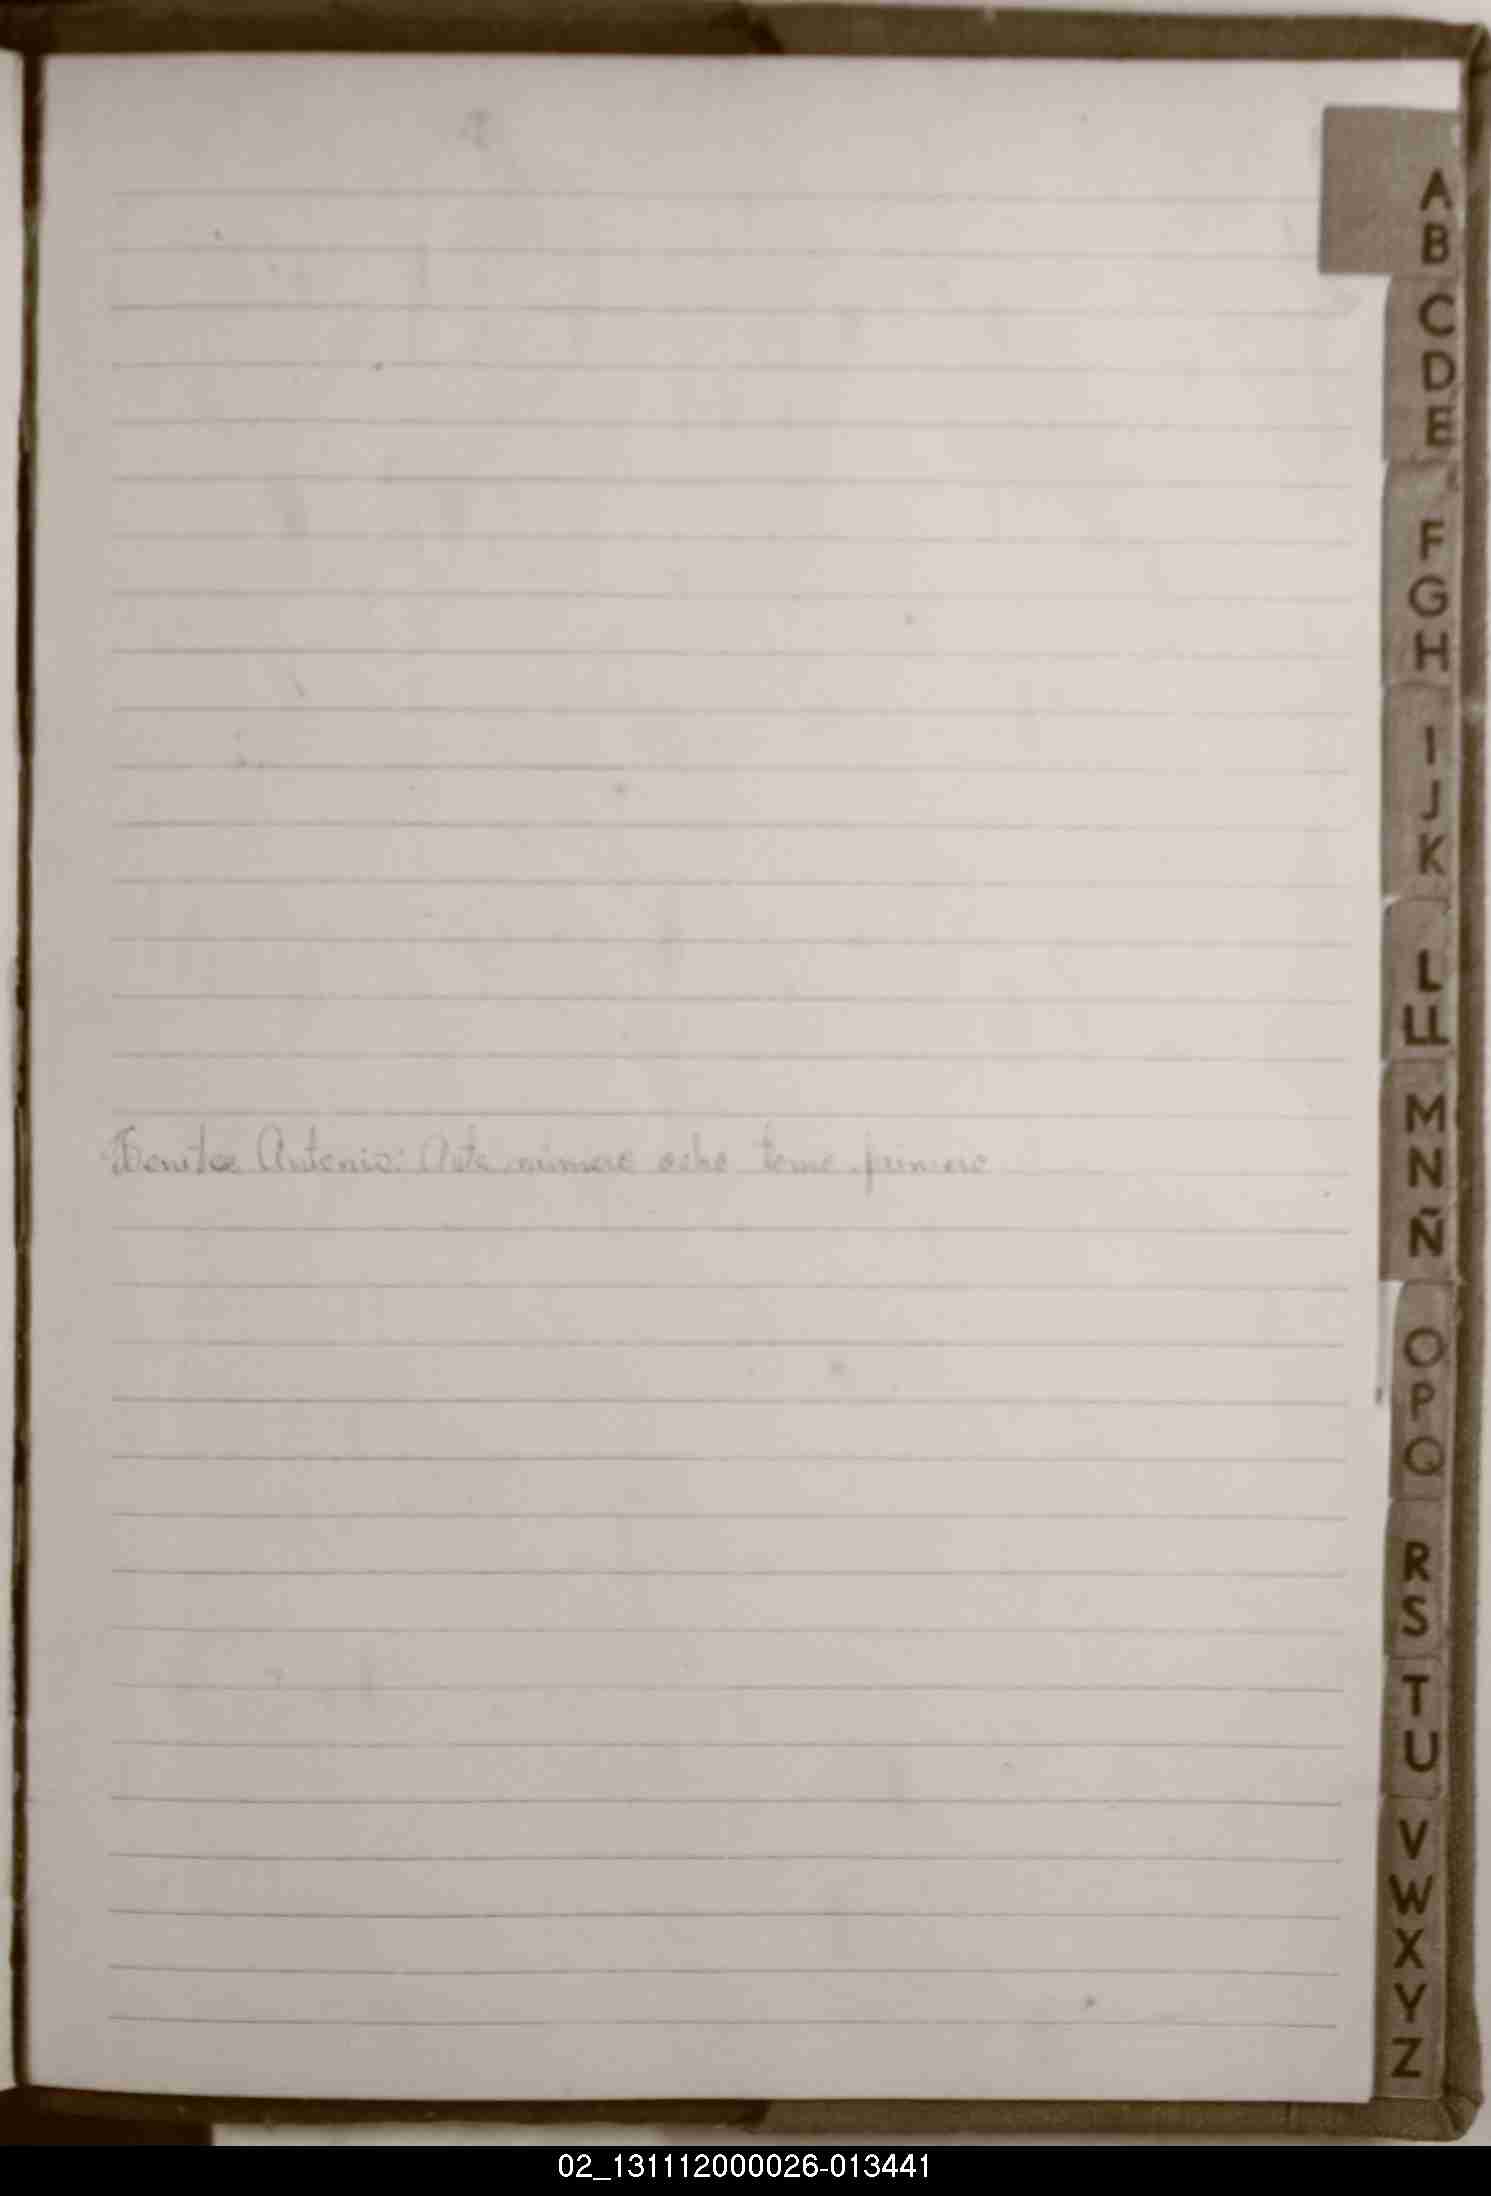 A
B
C
D
E
F
G
H
I
J
K
L
LL
M
N
Ñ
O
P
Q
R
S
T
U
V
W
X
Y
Z
Benitez Antonio: Acta número ocho tomo primero
02_131112000026-013441